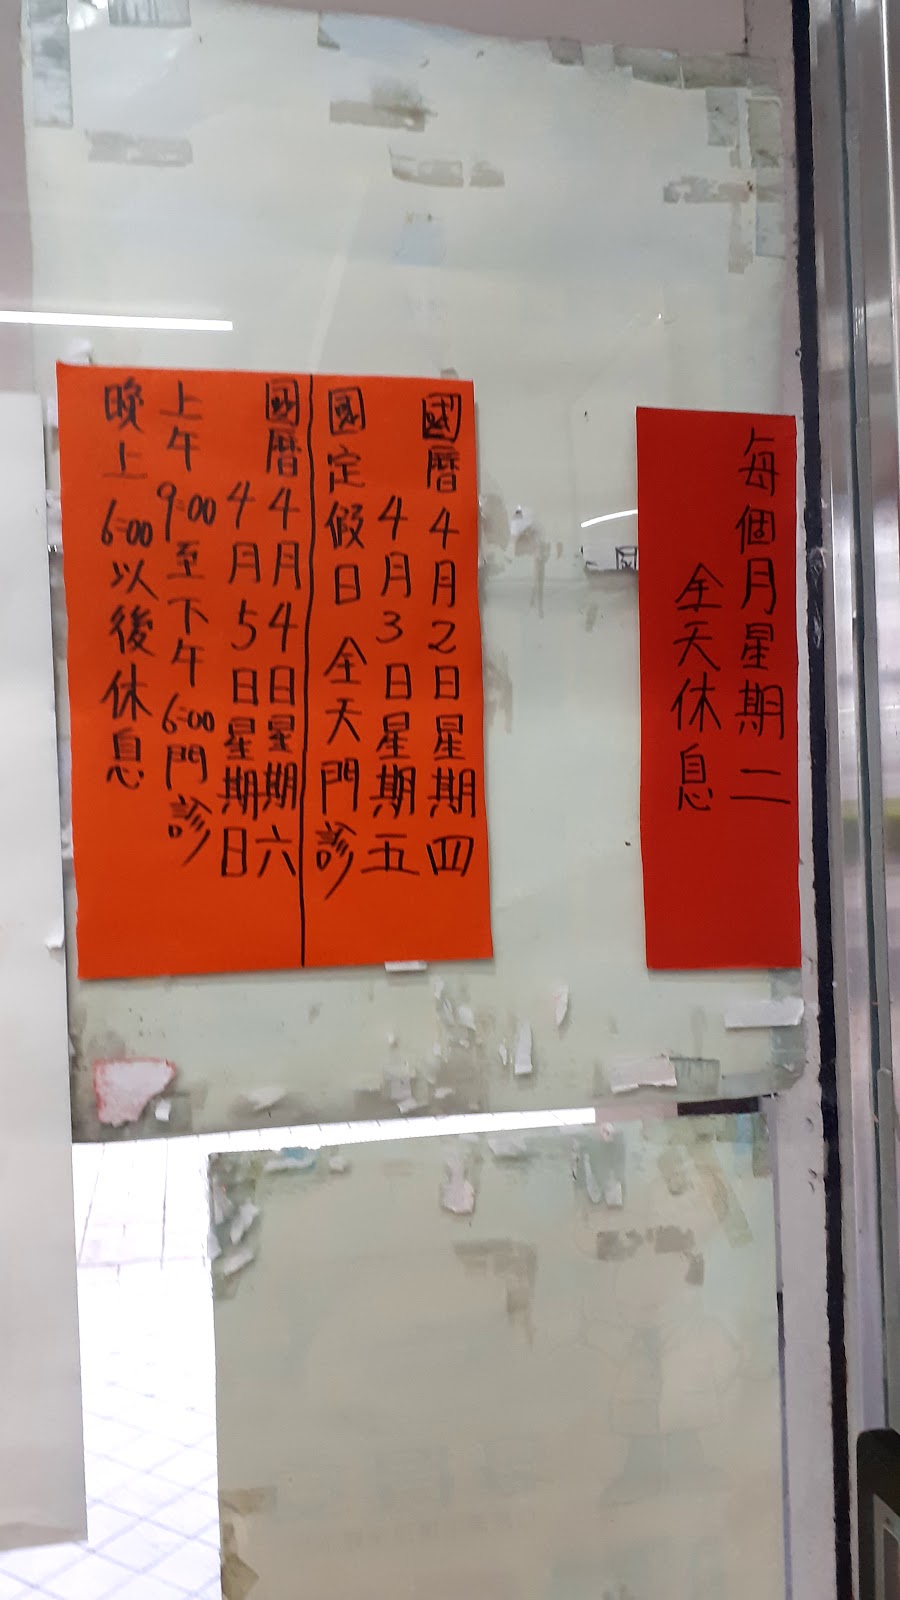 每個月星期二
全天休息
國曆4月2日星期四
4月3日星期五
國定假日 全天門診
國曆4月4日星期六
4月5日星期日
上午9:00至下午6:00門診
晚上6:00以後休息